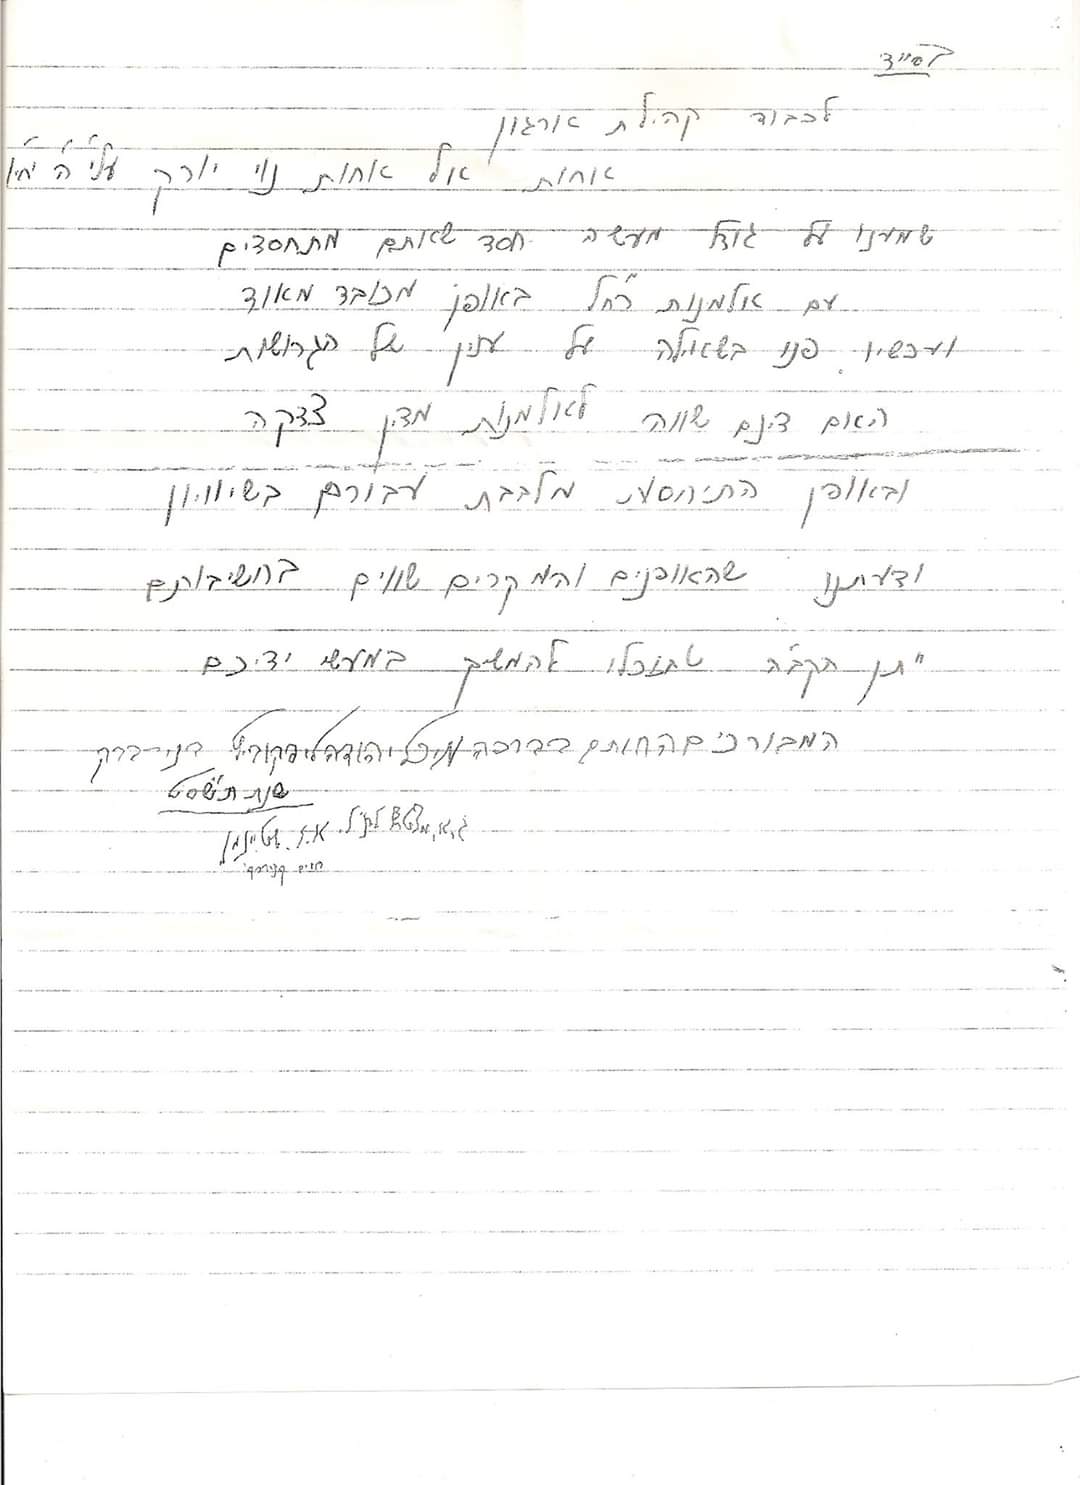 בסייד
לכבוד קהילת ארגון
אחות אל אחות נוי יורק
שמענו על גודל מעשה חסד שאתם מתחסדים
עם אלמנות רח״ל באופן מכובד מאוד
ועכשיו פנו בשאילה על ענין של הגרושות
האם דינם שווה לאלמנות מדין צדקה
ובאופן התיחסות מלבבת עבורם בשיוויון
ודעתנו שהאופנים והמקרים שווים בחשיבותם
יתן הקב״ה שתוכלו להמשיך במעשי ידיכם
המבורכים החותם בברכה מיכל יהודה ליפקוביץ בני-ברק
שנת תשסט
א.ל. שטיינמן
חיים קניבסקי